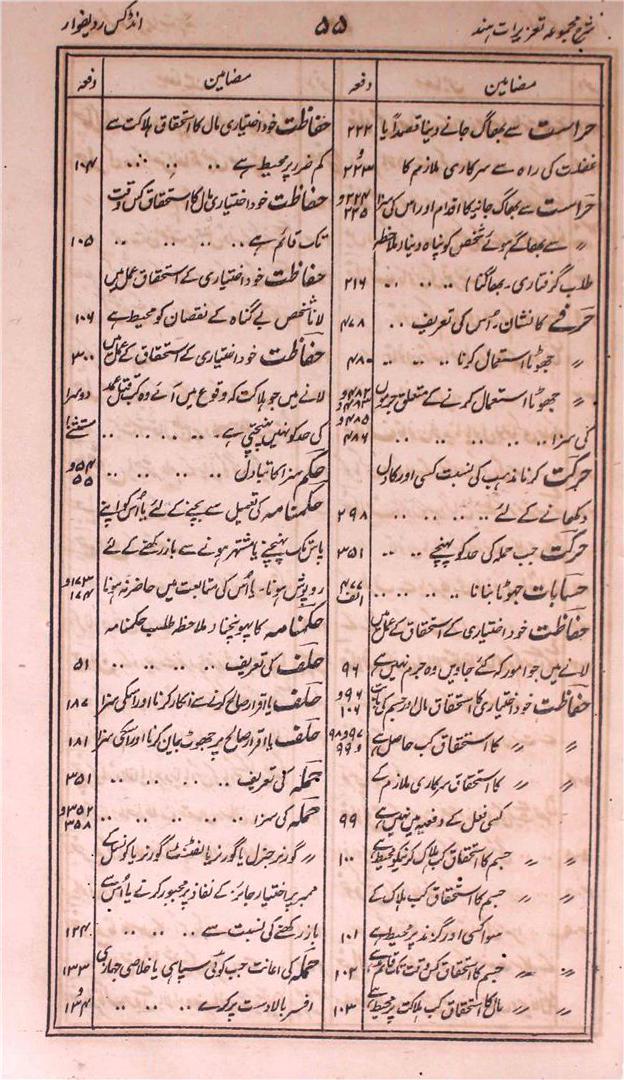 شرح مجموعہ تعزیرات ہند ۵۵ انڈکس ردیفوار
مضامین دفعہ
حراست سے بھاگ جانے دینا قصداً یا ۲۲۲
غفلت کی راہ سے سرکاری ملازم کا و ۲۲۳
حراست سے بھاگ جانیکا اقدام اور اس کی سزا ۲۲۴ و ۲۲۵
〃 سے بھاگے ہوئے شخص کو پناہ دینا (ملاحظہ
طلب گرفتاری۔ بھاگنا) .. .. .. ۲۱۶
حرفے کا نشان۔ اُس کی تعریف .. .. ۴۷۸
〃 جھوٹا استعمال کرنا .. .. .. ۴۸۰
〃 جھوٹا استعمال کرنے کے متعلق جرموں ۴۸۲ و ۴۸۳ و
کی سزا .. .. .. .. .. ۴۸۵ ۴۸۶
حرکت کرنا مذہب کی نسبت کسی اور کا دل
دکھانے کے لئے .. .. .. .. ۲۹۸
حرکت جب حملہ کی حد کو پہنچے .. .. ۳۵۱
حسابات جھوٹا بنانا .. .. .. .. ۴۷۷ الف
حفاظت خود اختیاری کے استحقاق کے عمل میں
لانے میں جو امور کہ کئے جاویں وہ جرم نہیں ہے ۹۶
حفاظت خود اختیاری کا استحقاق مال اور جسم کی بابت ۹۶ و ۱۰۶
〃 〃 کا استحقاق کب حاصل ہے ۹۷ و ۹۸ و ۹۹
〃 〃 کا استحقاق سرکاری ملازم کے
کسی فعل کے دفعیہ میں نہیں ہے ۹۹
〃 〃 جسم کا استحقاق کب ہلاک کرنیکو محیط ہے ۱۰۰
〃 〃 جسم کا استحقاق کب ہلاک کے
سوا کسی اور گزند پر محیط ہے ۱۰۱
〃 〃 جسم کا استحقاق کس وقت تک قائم ہے ۱۰۲
〃 〃 مال کا استحقاق کب ہلاکت پر محیط ہے ۱۰۳
مضامین دفعہ
حفاظت خود اختیاری مال کا استحقاق ہلاکت سے
کم ضرر پر محیط ہے .. .. .. ۱۰۴
حفاظت خود اختیاری مال کا استحقاق کس وقت
تک قائم ہے .. .. .. .. ۱۰۵
حفاظت خود اختیاری کے استحقاق عمل میں
لانا شخص بے گناہ کے نقصان کو محیط ہے ۱۰۶
حفاظت خود اختیاری کے استحقاق کے عمل میں ۳۰۰
لانے میں جو ہلاکت کہ وقوع میں آئے وہ کب قتل عمد دوسرا
کی حد کو نہیں پہنچتی ہے۔ .. .. .. .. مستثنےٰ
حکم سزا کا تبادل .. .. .. .. ۵۴ و ۵۵
حکمنامہ کی تعمیل سے بچنے کے لئے یا اُس کو اپنے
پاس تک پہنچنے یا مشتہر ہونے سے باز رکھنے کے لئے
روپوش ہونا۔ یا اُس کی متابعت میں حاضر نہ ہونا ۱۷۳ و ۱۷۴
حکمنامہ کا پہونچنا (ملاحظہ طلب حکمنامہ
حلف کی تعریف .. .. .. .. ۵۱
حلف یا اقرار صالح کرنے سے انکار کرنا اور اسکی سزا ۱۸۷
حلف یا اقرار صالح پر جھوٹ بیان کرنا اور اسکی سزا ۱۸۱
حملہ کی تعریف .. .. .. .. .. ۳۵۱
حملہ کی سزا .. .. .. .. .. ۳۵۲ و ۳۵۸
〃 گورنر جنرل یا گورنر یا لفٹنٹ گورنر یا کونسل کے
ممبر پر اختیار جائز کے نفاذ پر مجبور کرنے یا اُس سے
باز رکھنے کی نسبت سے .. .. .. ۱۲۴
حملہ کی اعانت جب کوئی سپاہی یا خلاصی جہازی ۱۳۳
افسر بالا دست پر کرے .. .. .. .. و ۱۳۴